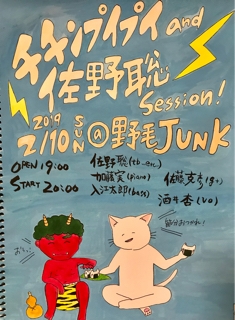 チキンプイプイ and
佐野聡
Session!
2019
2/10 SUN @野毛JUNK
OPEN 19:00
START 20:00
佐野聡(tb.etc)
加藤実(piano)
入江太郎(bass)
佐藤克彦(gt)
酒井杏(vo)